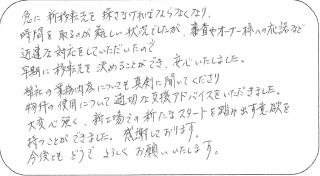 急に新移転先を探さなければならなくなり、
時間を取るのが難しい状況でしたが、審査やオーナー様への応諾など
迅速な対応をしていただいたので
早期に移転先を決めることができ、安心いたしました。
弊社の業務内容についても真剣に聞いてくださり
物件の使用について適切な支援アドバイスをいただきました。
大変心強く、新工場での新たなスタートを踏み出す意欲を
持つことができました。感謝しております。
今後ともどうぞよろしくお願いいたします。